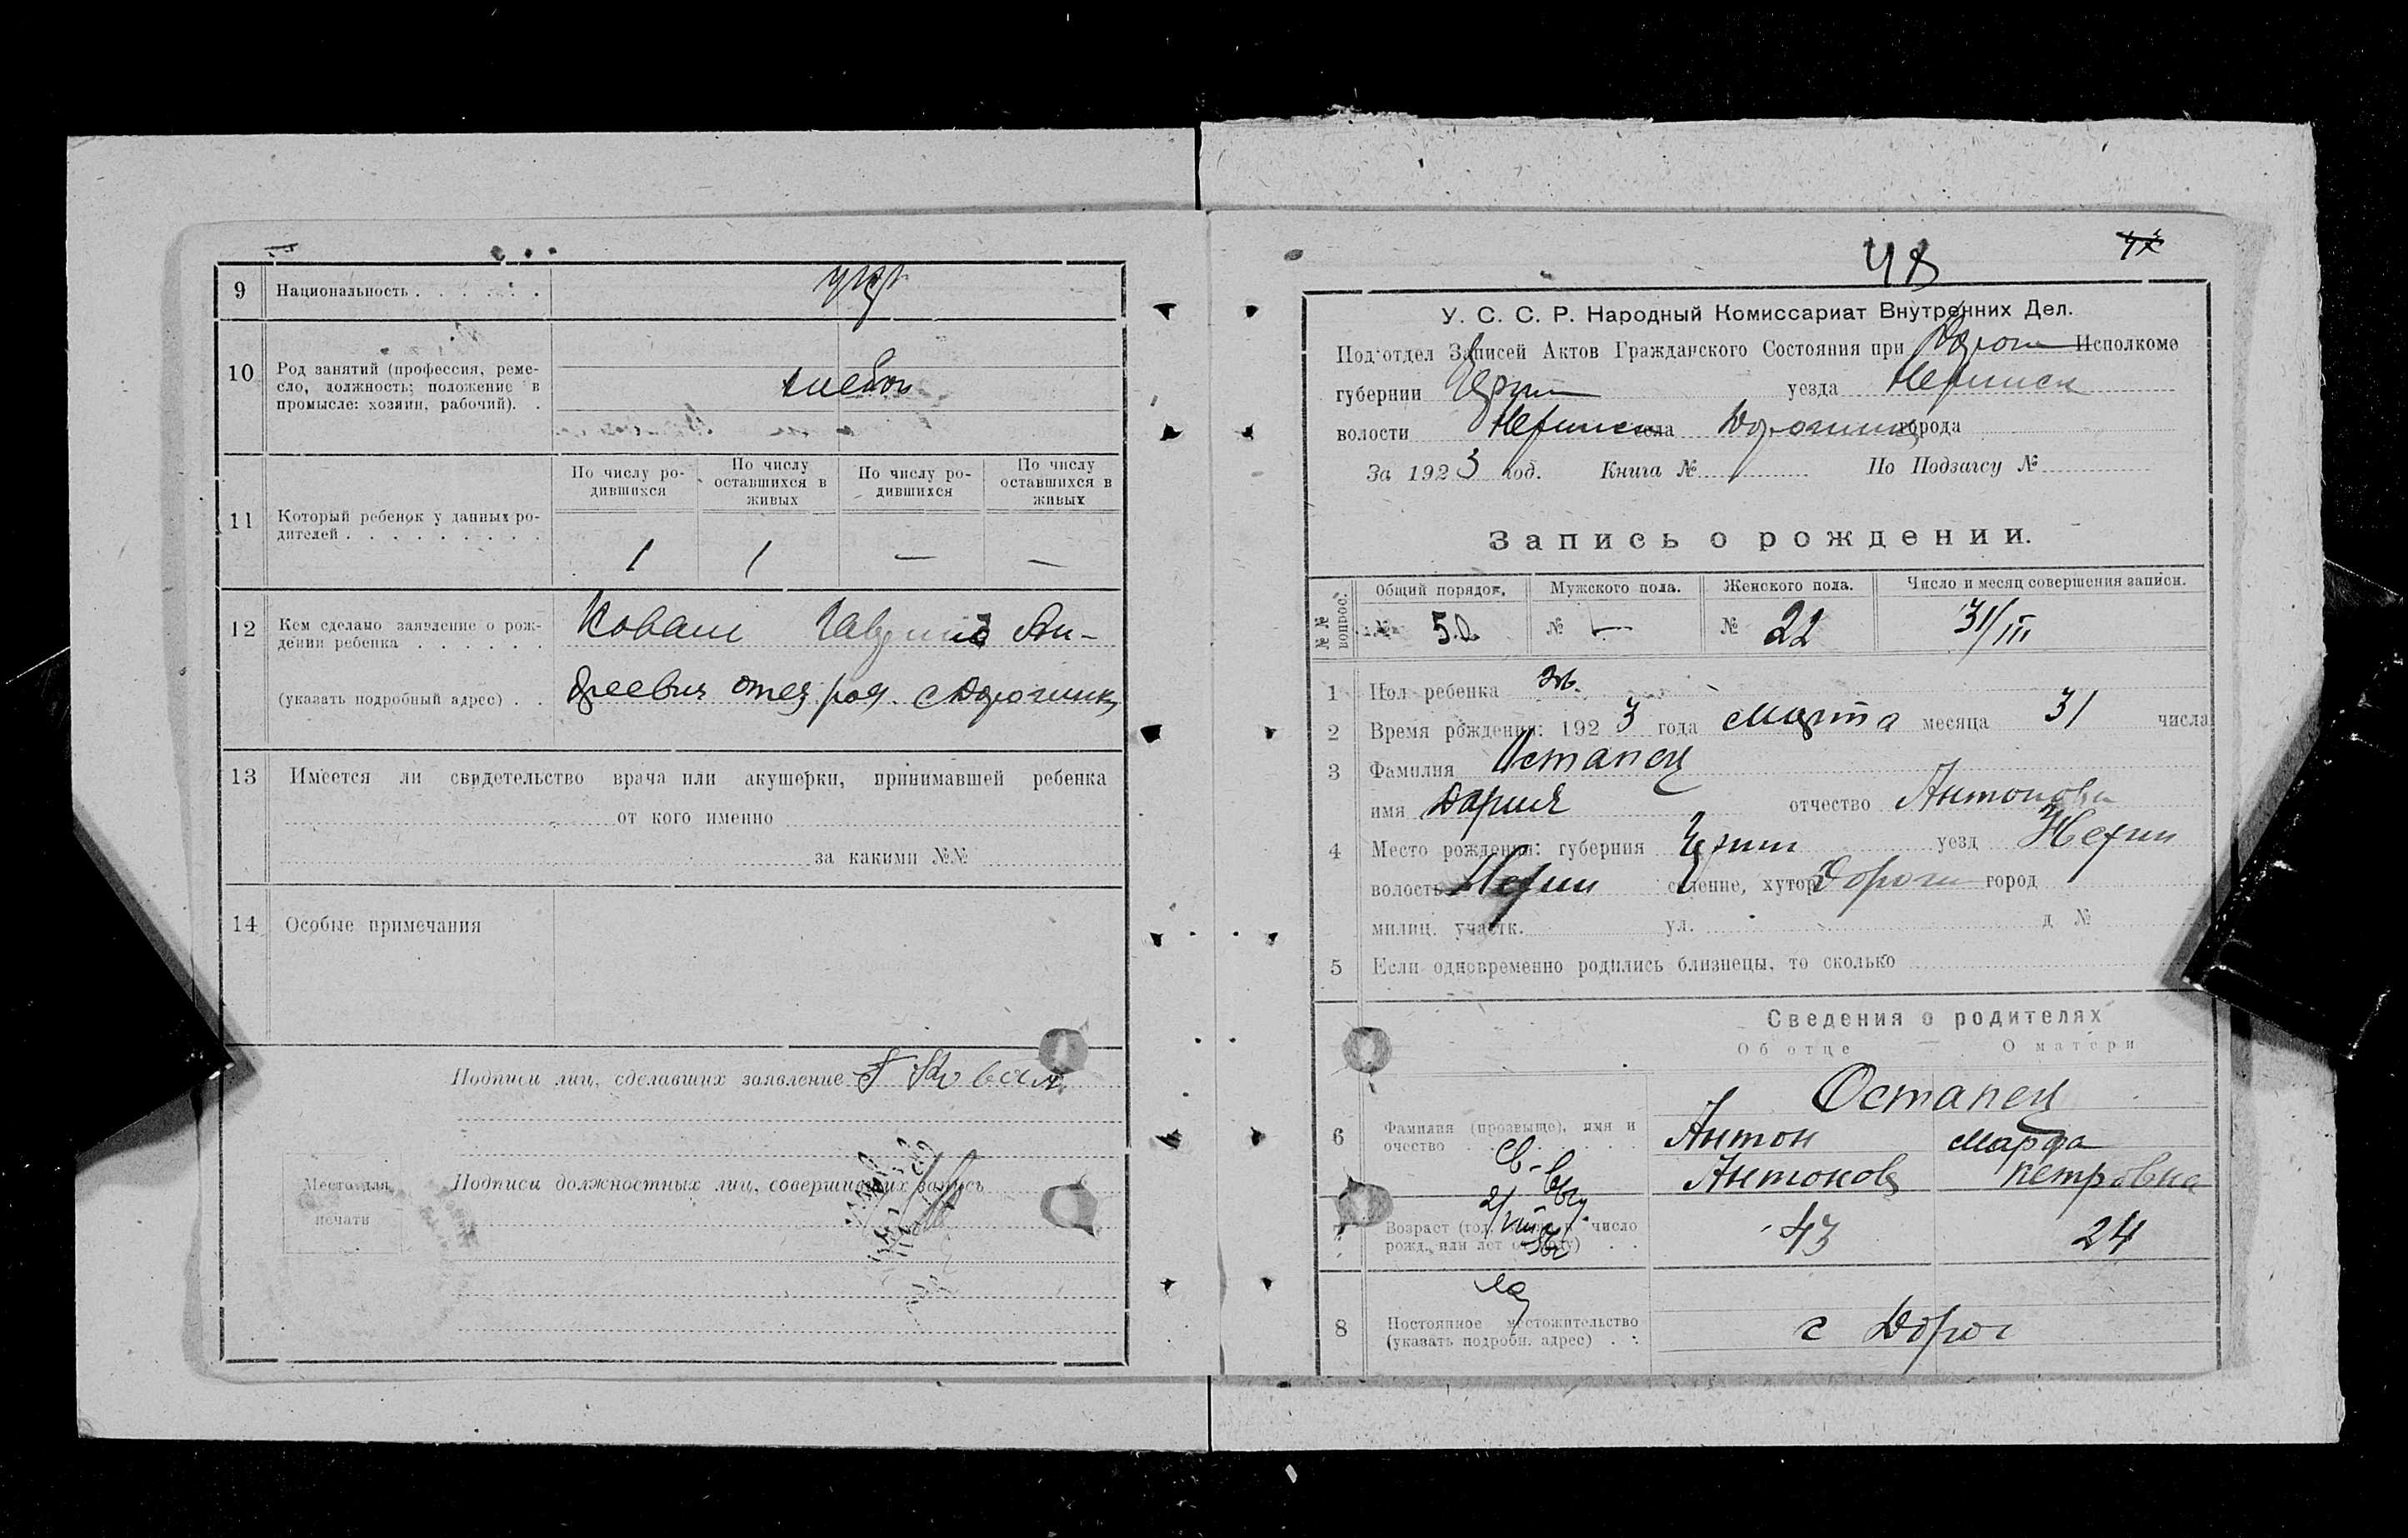 9 Национальность . . . . . . укр
10 Род занятий (профессия, реме-
сло, должность; положение в
промысле: хозяин, рабочий). .
хлебоп
11 Который ребенок у данных ро-
дителей . . . . . . . . .
По числу ро-
дившихся
По числу
оставшихся в
живых
По числу ро-
дившихся
По числу
оставшихся в
живых
1 1 — —
12 Кем сделано заявление о рож-
дении ребенка . . . . . .
(указать подробный адрес) . .
Коваль Гаврило Ан-
дреевич отец род. с Дорогинки
13 Имеется ли свидетельство врача или акушерки, принимавшей ребенка
от кого именно
за какими №№
14 Особые примечания
Подписи лиц, сделавших заявление Г Коваль
Подписи должностных лиц, совершивших запись
Место для
печати
48
У. С. С. Р. Народный Комиссариат Внутренних Дел.
Подотдел Записей Актов Гражданского Состояния при Дорог Исполкоме
губернии Черниг уезда Нежинск
волости Нежинск села Дорогинка города
За 1923 год. Книга № По Подзагсу №
Запись о рождении.
№№ вопрос.
Общий порядок. Мужского пола. Женского пола. Число и месяц совершения записи.
№ 50 № — № 22 31/III
1 Пол ребенка жв.
2 Время рождения: 1923 года Марта месяца 31 числа
3 Фамилия Остапец
имя Дария отчество Антонова
4 Место рождения: губерния Черниг уезд Нежин
волость Нежин селение, хутор Дороги город
милиц. участк. ул. д №
5 Если одновременно родились близнецы, то сколько
Сведения о родителях
Об отце О матери
6 Фамилия (прозвыще), имя и
очество . . . . . . .
Остапец
Антон Марфа
Антонов Петровна
7 Возраст (год, число
рожд., или лет от роду) . .
43 24
8 Постоянное местожительство
(указать подробн. адрес) . .
с Дорог